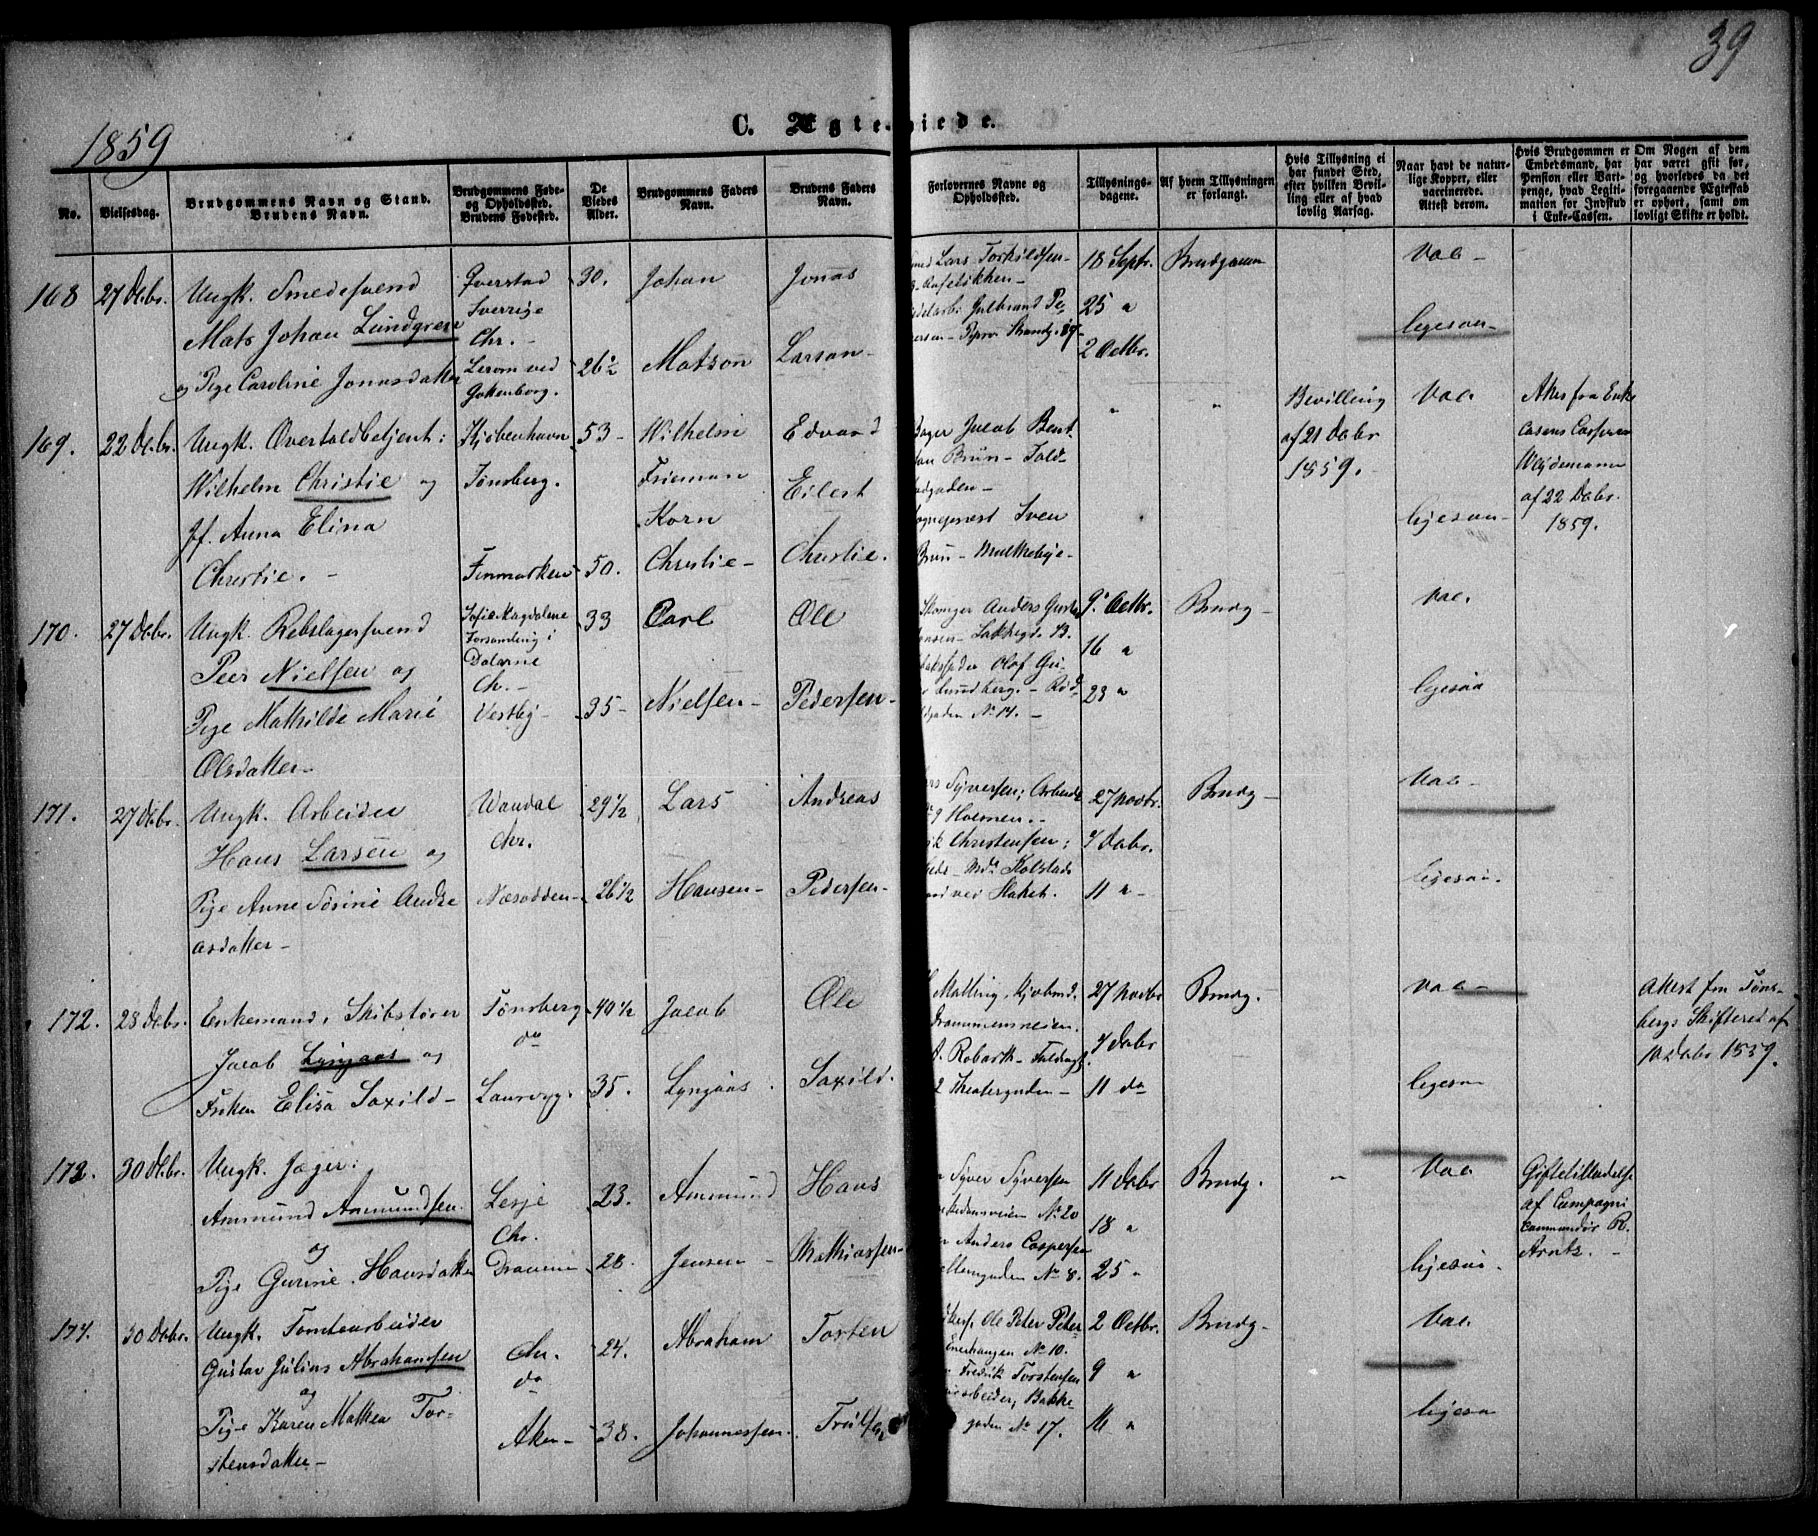 39
1859
C. Ægteviede.
No.
Vielsesdag.
Brudgommens Navn og Stand.
Brudens Navn.
Brudgommens Føde-
og Opholdssted.
Brudens Fødested.
De
Viedes
Alder.
Brudgommens Faders
Navn.
Brudens Faders
Navn.
Forlovernes Navne og
Opholdssted.
Tillysnings-
dagene.
Af hvem Tillysningen
er forlangt.
Hvis Tillysning ei
har fundet Sted,
efter hvilken Bevil-
ling eller af hvad
lovlig Aarsag.
Naar havt de natur-
lige Kopper, eller
vaccinerede.
Attest derom.
Hvis Brudgommen er
Embedsmand, har
Pension eller Vart-
penge, hvad Legiti-
mation for Indskud
i Enke-Cassen.
Om Nogen af dem
har været gift før,
og hvorledes da det
foregaaende Ægteskab
er ophørt, samt om
lovligt Skifte er holdt.
168 27 Debr. Ungk. Smedesvend
Mats Johan Lundgren
og Pige Caroline Jonasdatter
Sverrige
Chr. -
Lerom ved
Gottenborg.
30.
26½
Johan
Matson
Jonas
Larson -
Lars Torkildsen
18 Septr.
25 "
2 Octbr.
Brudgommen
Vac -
ligesaa -
169. 22 Debr. Ungk. Overtoldbetjent:
Wilhelm Christie og
Jf. Anna Elina
Christie. -
Kjøbenhavn
Tønsberg.
Finmarken
53 -
50.
Wilhelm
Frieman
Korn
Christie -
Edvard
Eilert
Christie.
Jacob Bent-
Brun - Told-
Sven
Brun -
" "
Bevilling
af 21 Debr
1859.
Vac
ligesaa -
Attest fra Enke
Cassens
af 22 Debr.
1859.
170. 27 Debr. Ungk. Rebslagersvend
Peer Nielsen og
Pige Mathilde Marie
Olsdatter -
Sofie Magdalene
Forsamling i
Dalarne
Ch. -
Vestby -
33
35 -
Carl
Nielsen -
Ole
Pedersen -
Anders
Olof
Lundberg. -
No 14. -
9 Octbr.
16 "
23 "
Brudg -
Vac.
ligesaa
171. 27 Debr. Ungk. Arbeider
Hans Larsen og
Pige Anne Sørine Andre
asdatter -
Chr.
Næsodden -
29 1/2
26 1/2
Lars
Hansen -
Andreas
Pedersen -
Syversen; Arbeids
Holmen. -
Christensen;
27 Novbr.
4 Debr.
11 " -
Brudg -
Vac -
ligesaa -
172. 28 Debr. Enkemand, Skibsfører
Jacob Lyngaas og
Frøken Elisa Saxild -
Tønsberg
do
Laurvig.
49 1/2
35.
Jacob
Lyngaas.
Ole
Saxild.
Malling, Kjøbmd.
Drammensveien.
Robark -
2 Theatergaden -
27 Novbr
4 Debr
11 do
Brudg.
Vac -
ligesaa
Attest fra Tøns-
bergs Skifteret af
10 Debr 1859.
173. 30 Debr. Ungk. Jæger:
Ammund Ammundsen.
og
Pige Gurine Hansdatter
Lesje
Chr.
Drammen
23.
28.
Ammund
Jensen -
Hans
Mathiassen -
Syver Syversen
No 20
Anders Caspersen
No 8.
11 Debr
18 "
25 "
Brudg.
"
Vac
ligesaa.
Giftetilladelse
af Compagni
Commandør R.
Arntz. -
174. 30 Debr. Ungk. Tomtearbeider
Gustav Julius Abrahamsen
og
Pige Karen Mathea Tor-
stensdatter -
Chr.
do
Aker -
24.
38.
Abraham
Johannessen.
Torsten
Ole Peter Peter-
Enerhaugen No 10.
Fredrik Torstensen
arbeider, Bakke-
gaden No 17.
2 Octbr.
9 "
16 "
Brudg -
Vac.
ligesaa